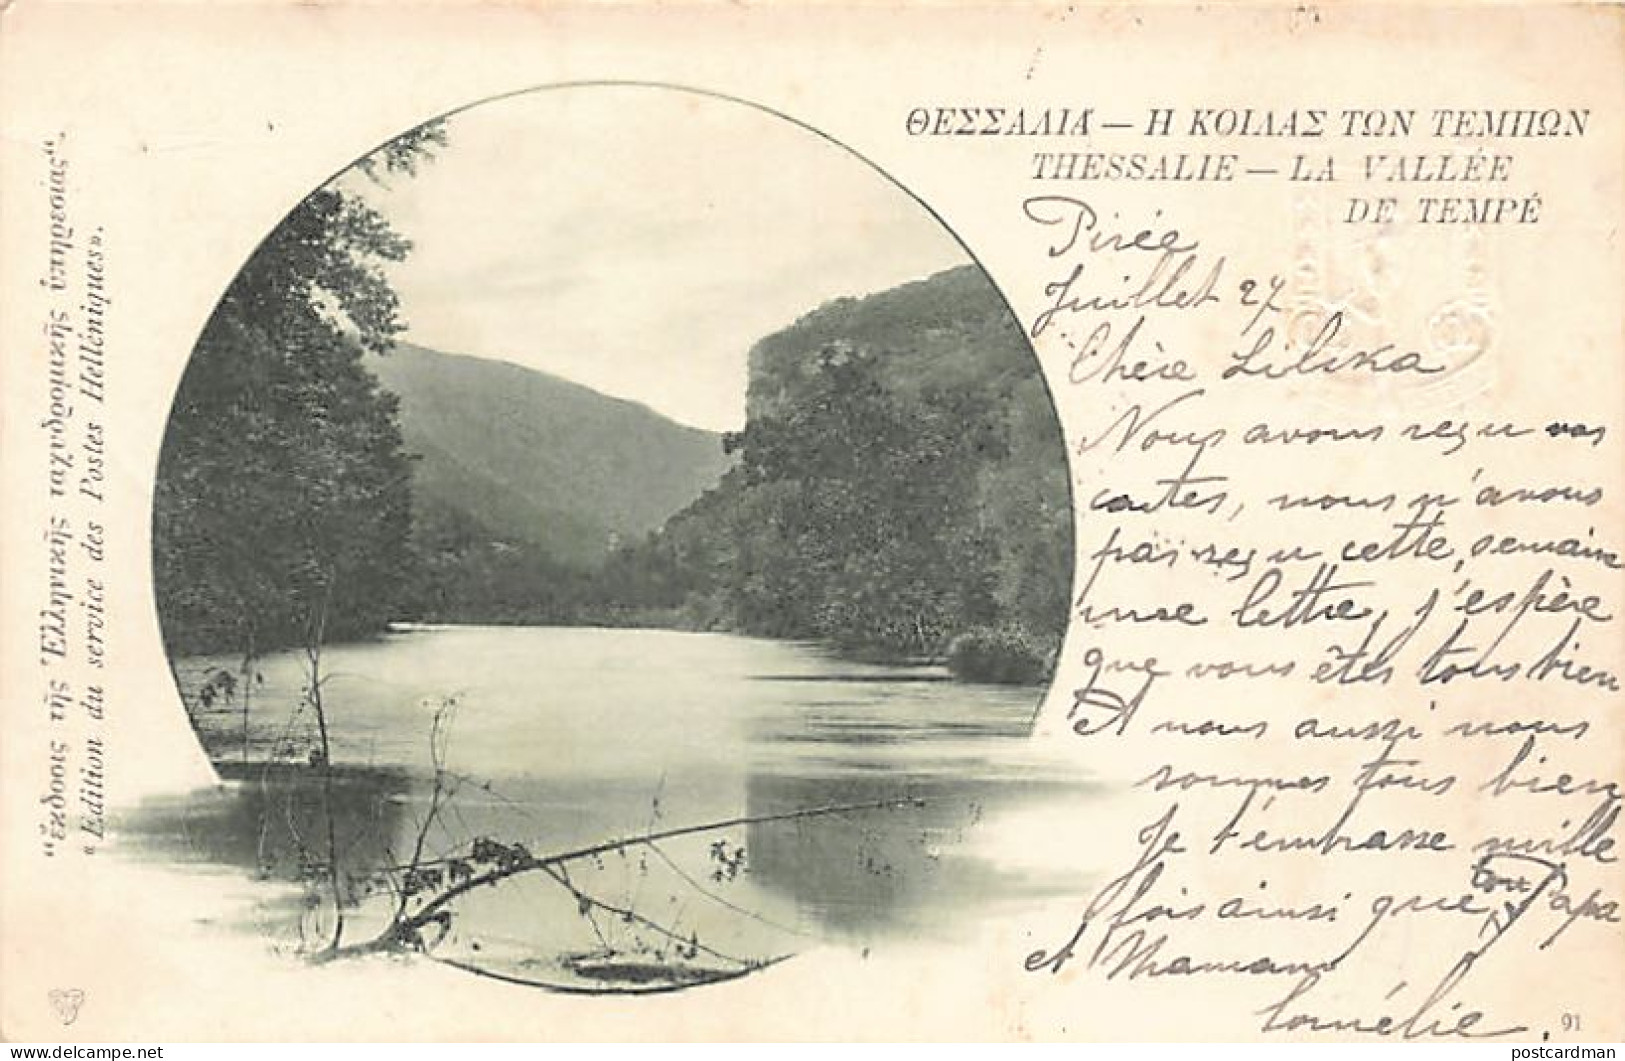 ΘΕΣΣΑΛΙΑ — Η ΚΟΙΛΑΣ ΤΩΝ ΤΕΜΠΩΝ
THESSALIE — LA VALLÉE
DE TEMPÉ
Pirée
Juillet 27
Chère Lilika
Nous avons reçu vos
cartes, nous n'avons
pas reçu cette semaine
une lettre, j'espère
que vous êtes tous bien
Et nous aussi nous
sommes tous bien
Je t'embrasse mille
fois ainsi que ton Papa
et Maman
Cornélie.
91
„Ἔκδοσις τῆς Ἑλληνικῆς ταχυδρομικῆς ὑπηρεσίας."
«Edition du service des Postes Helléniques».
www.delcampe.net
postcardman